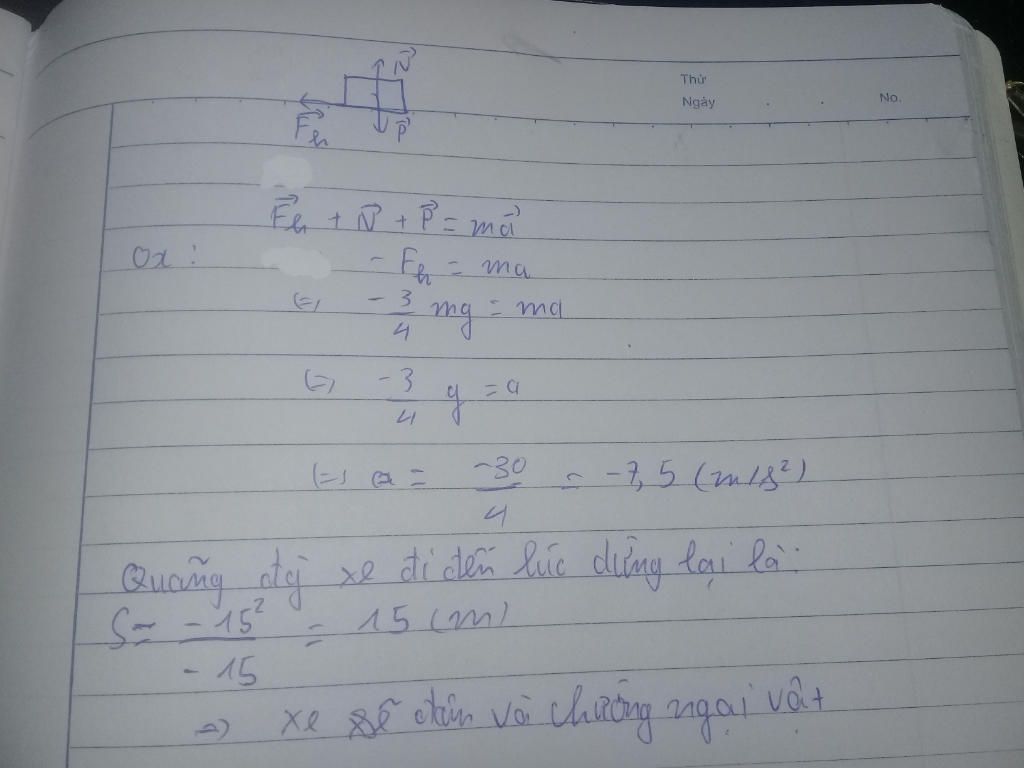 N
Thứ
Ngày
No.
Fh
P
Fh + N + P = ma
Ox :
- Fh = ma
(=) - 3/4 mg = ma
(=) -3/4 g = a
(=) a = -30/4 = -7,5 (m/s²)
Quãng đg xe đi đến lúc dừng lại là:
S = -15²/-15 = 15 (m)
=) xe sẽ đâm và chướng ngại vật